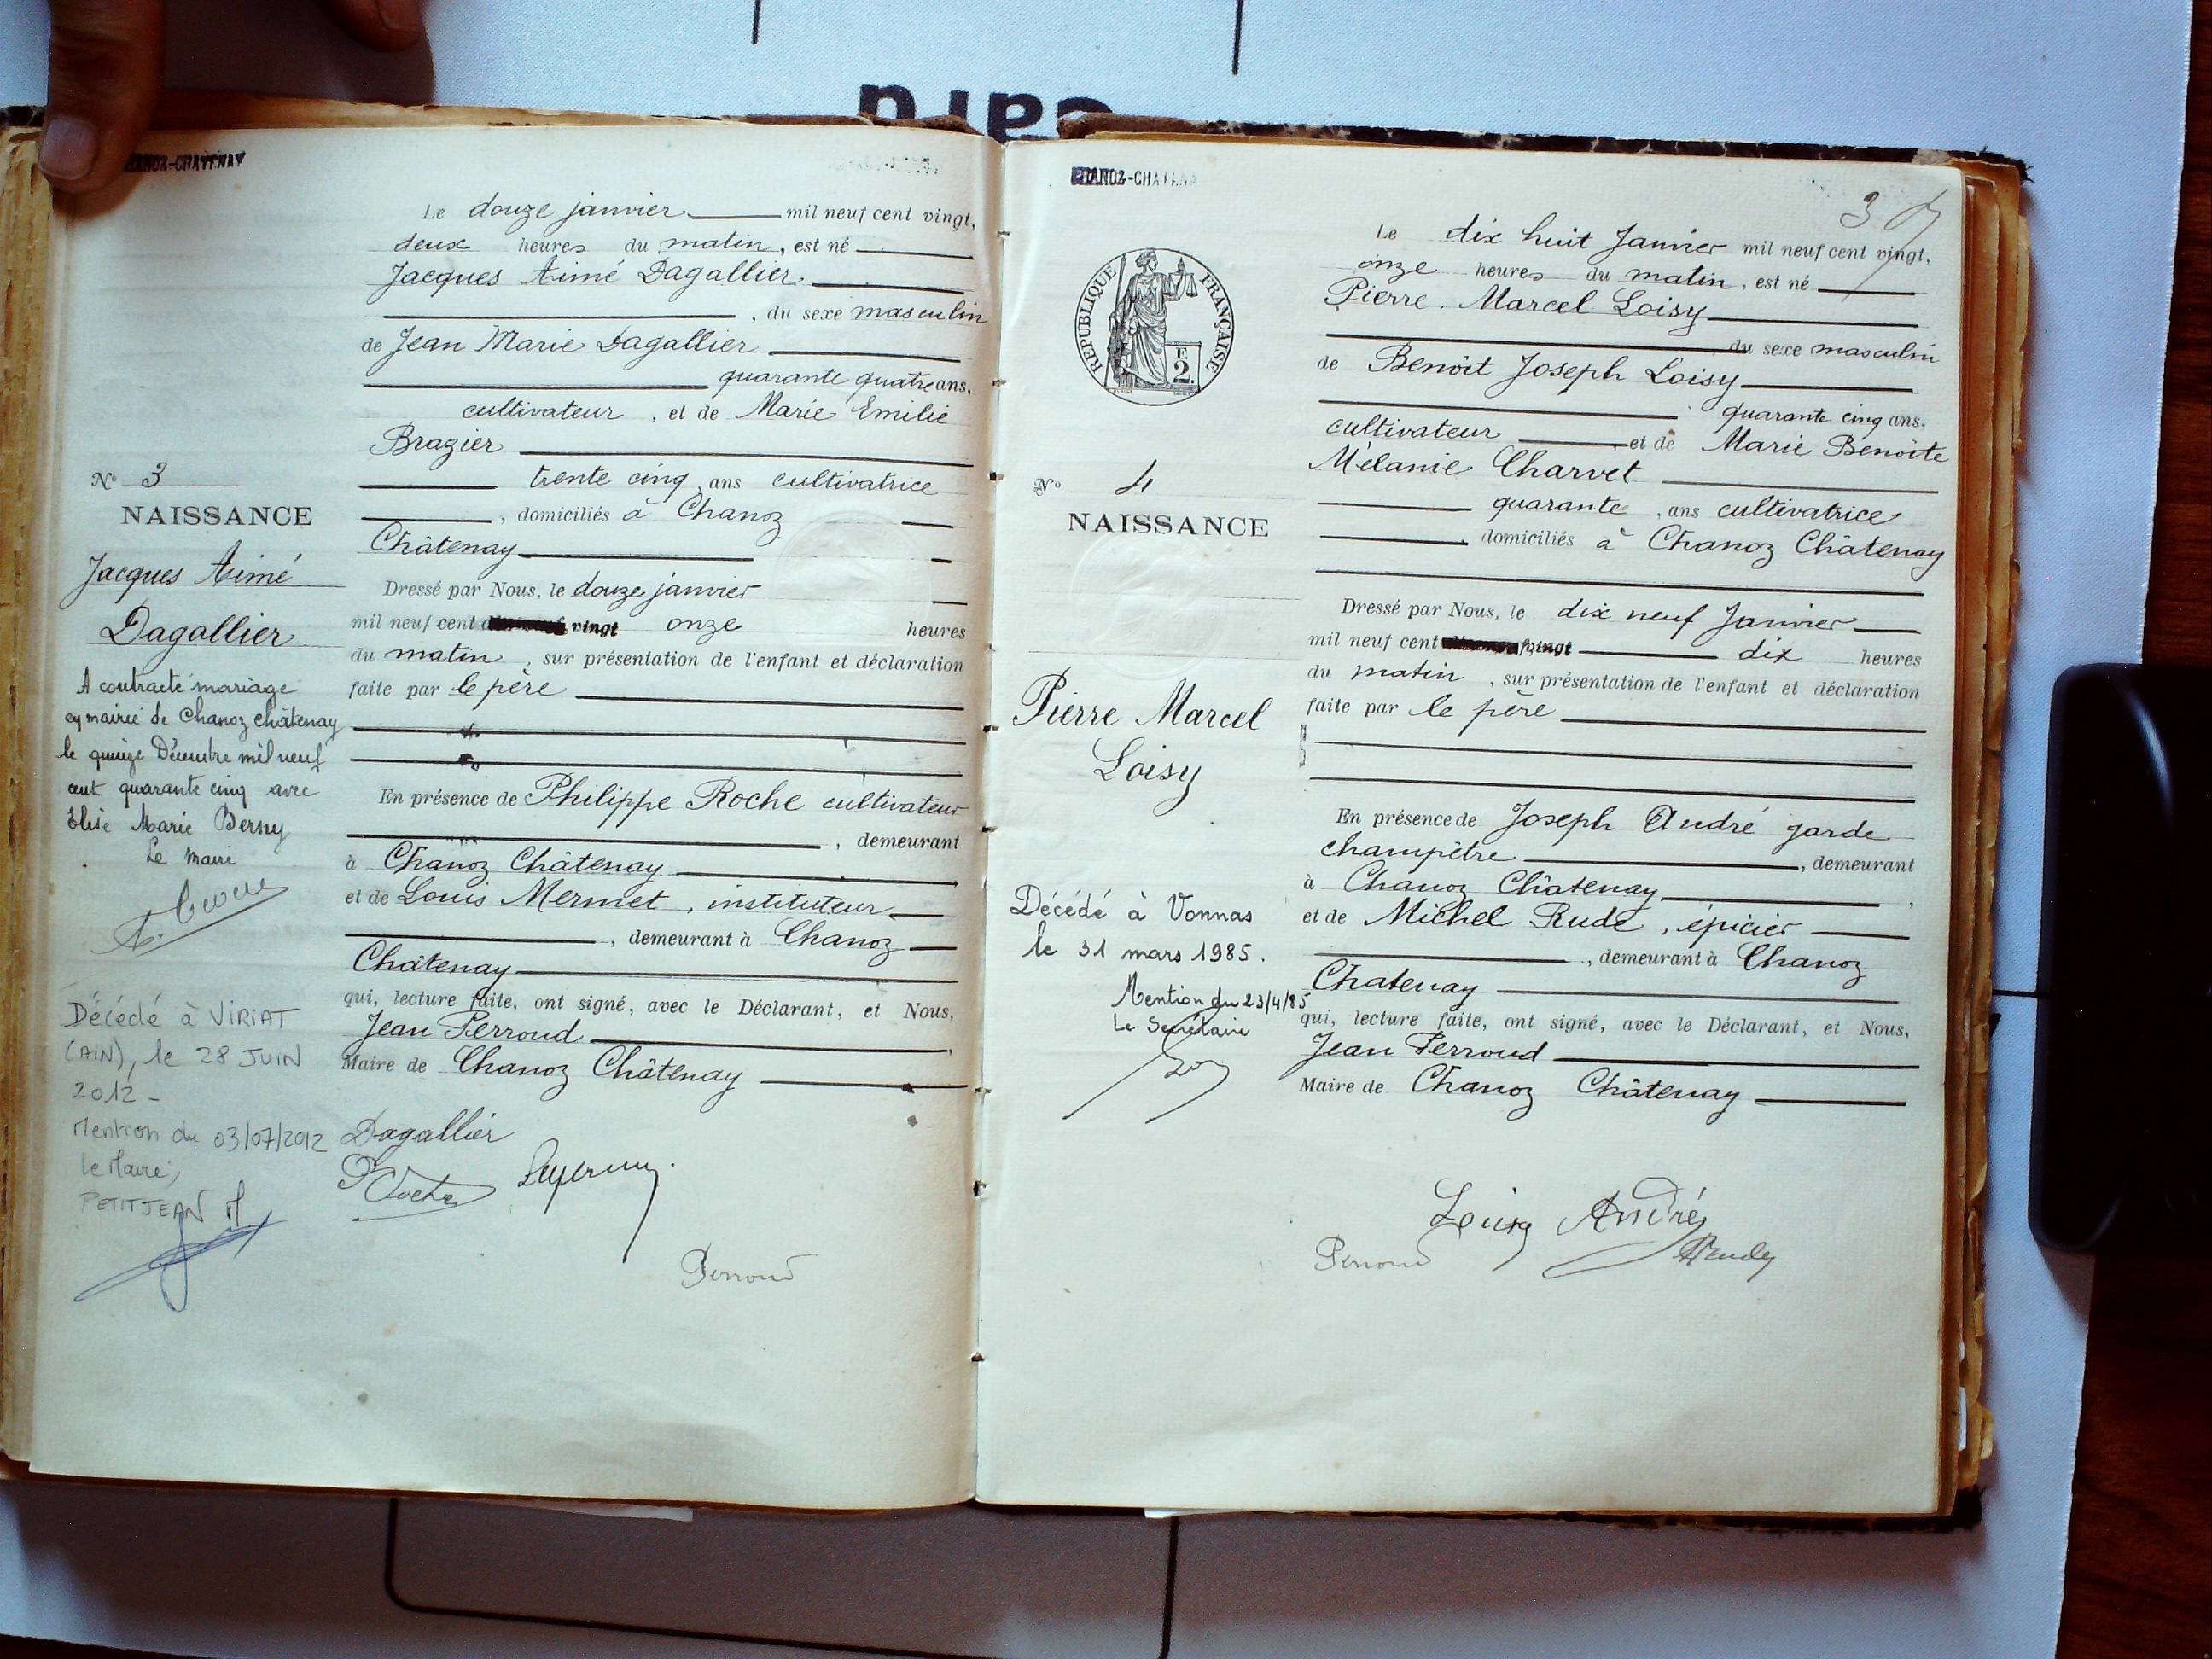 CHANOZ-CHATENAY
Le douze janvier mil neuf cent vingt,
deux heures du matin, est né
Jacques Aimé Dagallier
, du sexe masculin
de Jean Marie Dagallier
quarante quatre ans,
cultivateur, et de Marie Emilie
Brazier
trente cinq, ans cultivatrice
, domiciliés à Chanoz
Châtenay
Dressé par Nous, le douze janvier
mil neuf cent vingt onze heures
du matin, sur présentation de l'enfant et déclaration
faite par le père
En présence de Philippe Roche cultivateur
, demeurant
à Chanoz Châtenay
et de Louis Mermet, instituteur
, demeurant à Chanoz
Châtenay
qui, lecture faite, ont signé, avec le Déclarant, et Nous,
Jean Perroud
Maire de Chanoz Châtenay
Dagallier
Perroud
N° 3
NAISSANCE
Jacques Aimé
Dagallier
A contracté mariage
en mairie de Chanoz Châtenay
le quinze Décembre mil neuf
cent quarante cinq avec
Elise Marie Berny
Le Maire
Décédé à VIRIAT
(AIN), le 28 JUIN
2012 -
Mention du 03/07/2012
le Maire,
PETITJEAN
CHANOZ-CHATENAY
3
REPUBLIQUE FRANÇAISE
E
2.
Le dix huit Janvier mil neuf cent vingt,
onze heures du matin, est né
Pierre. Marcel Loisy
, du sexe masculin
de Benoît Joseph Loisy
quarante cinq ans,
cultivateur et de Marie Benoîte
Mélanie Charvet
quarante, ans cultivatrice
, domiciliés à Chanoz Châtenay
Dressé par Nous, le dix neuf Janvier
mil neuf cent vingt dix heures
du matin, sur présentation de l'enfant et déclaration
faite par le père
En présence de Joseph André garde
champêtre, demeurant
à Chanoz Châtenay
et de Michel Rude, épicier
, demeurant à Chanoz
Chatenay
qui, lecture faite, ont signé, avec le Déclarant, et Nous,
Jean Perroud
Maire de Chanoz Châtenay
Loisy André
Perroud Rude
N° 4
NAISSANCE
Pierre Marcel
Loisy
Décédé à Vonnas
le 31 mars 1985.
Mention du 23/4/85
Le Secrétaire